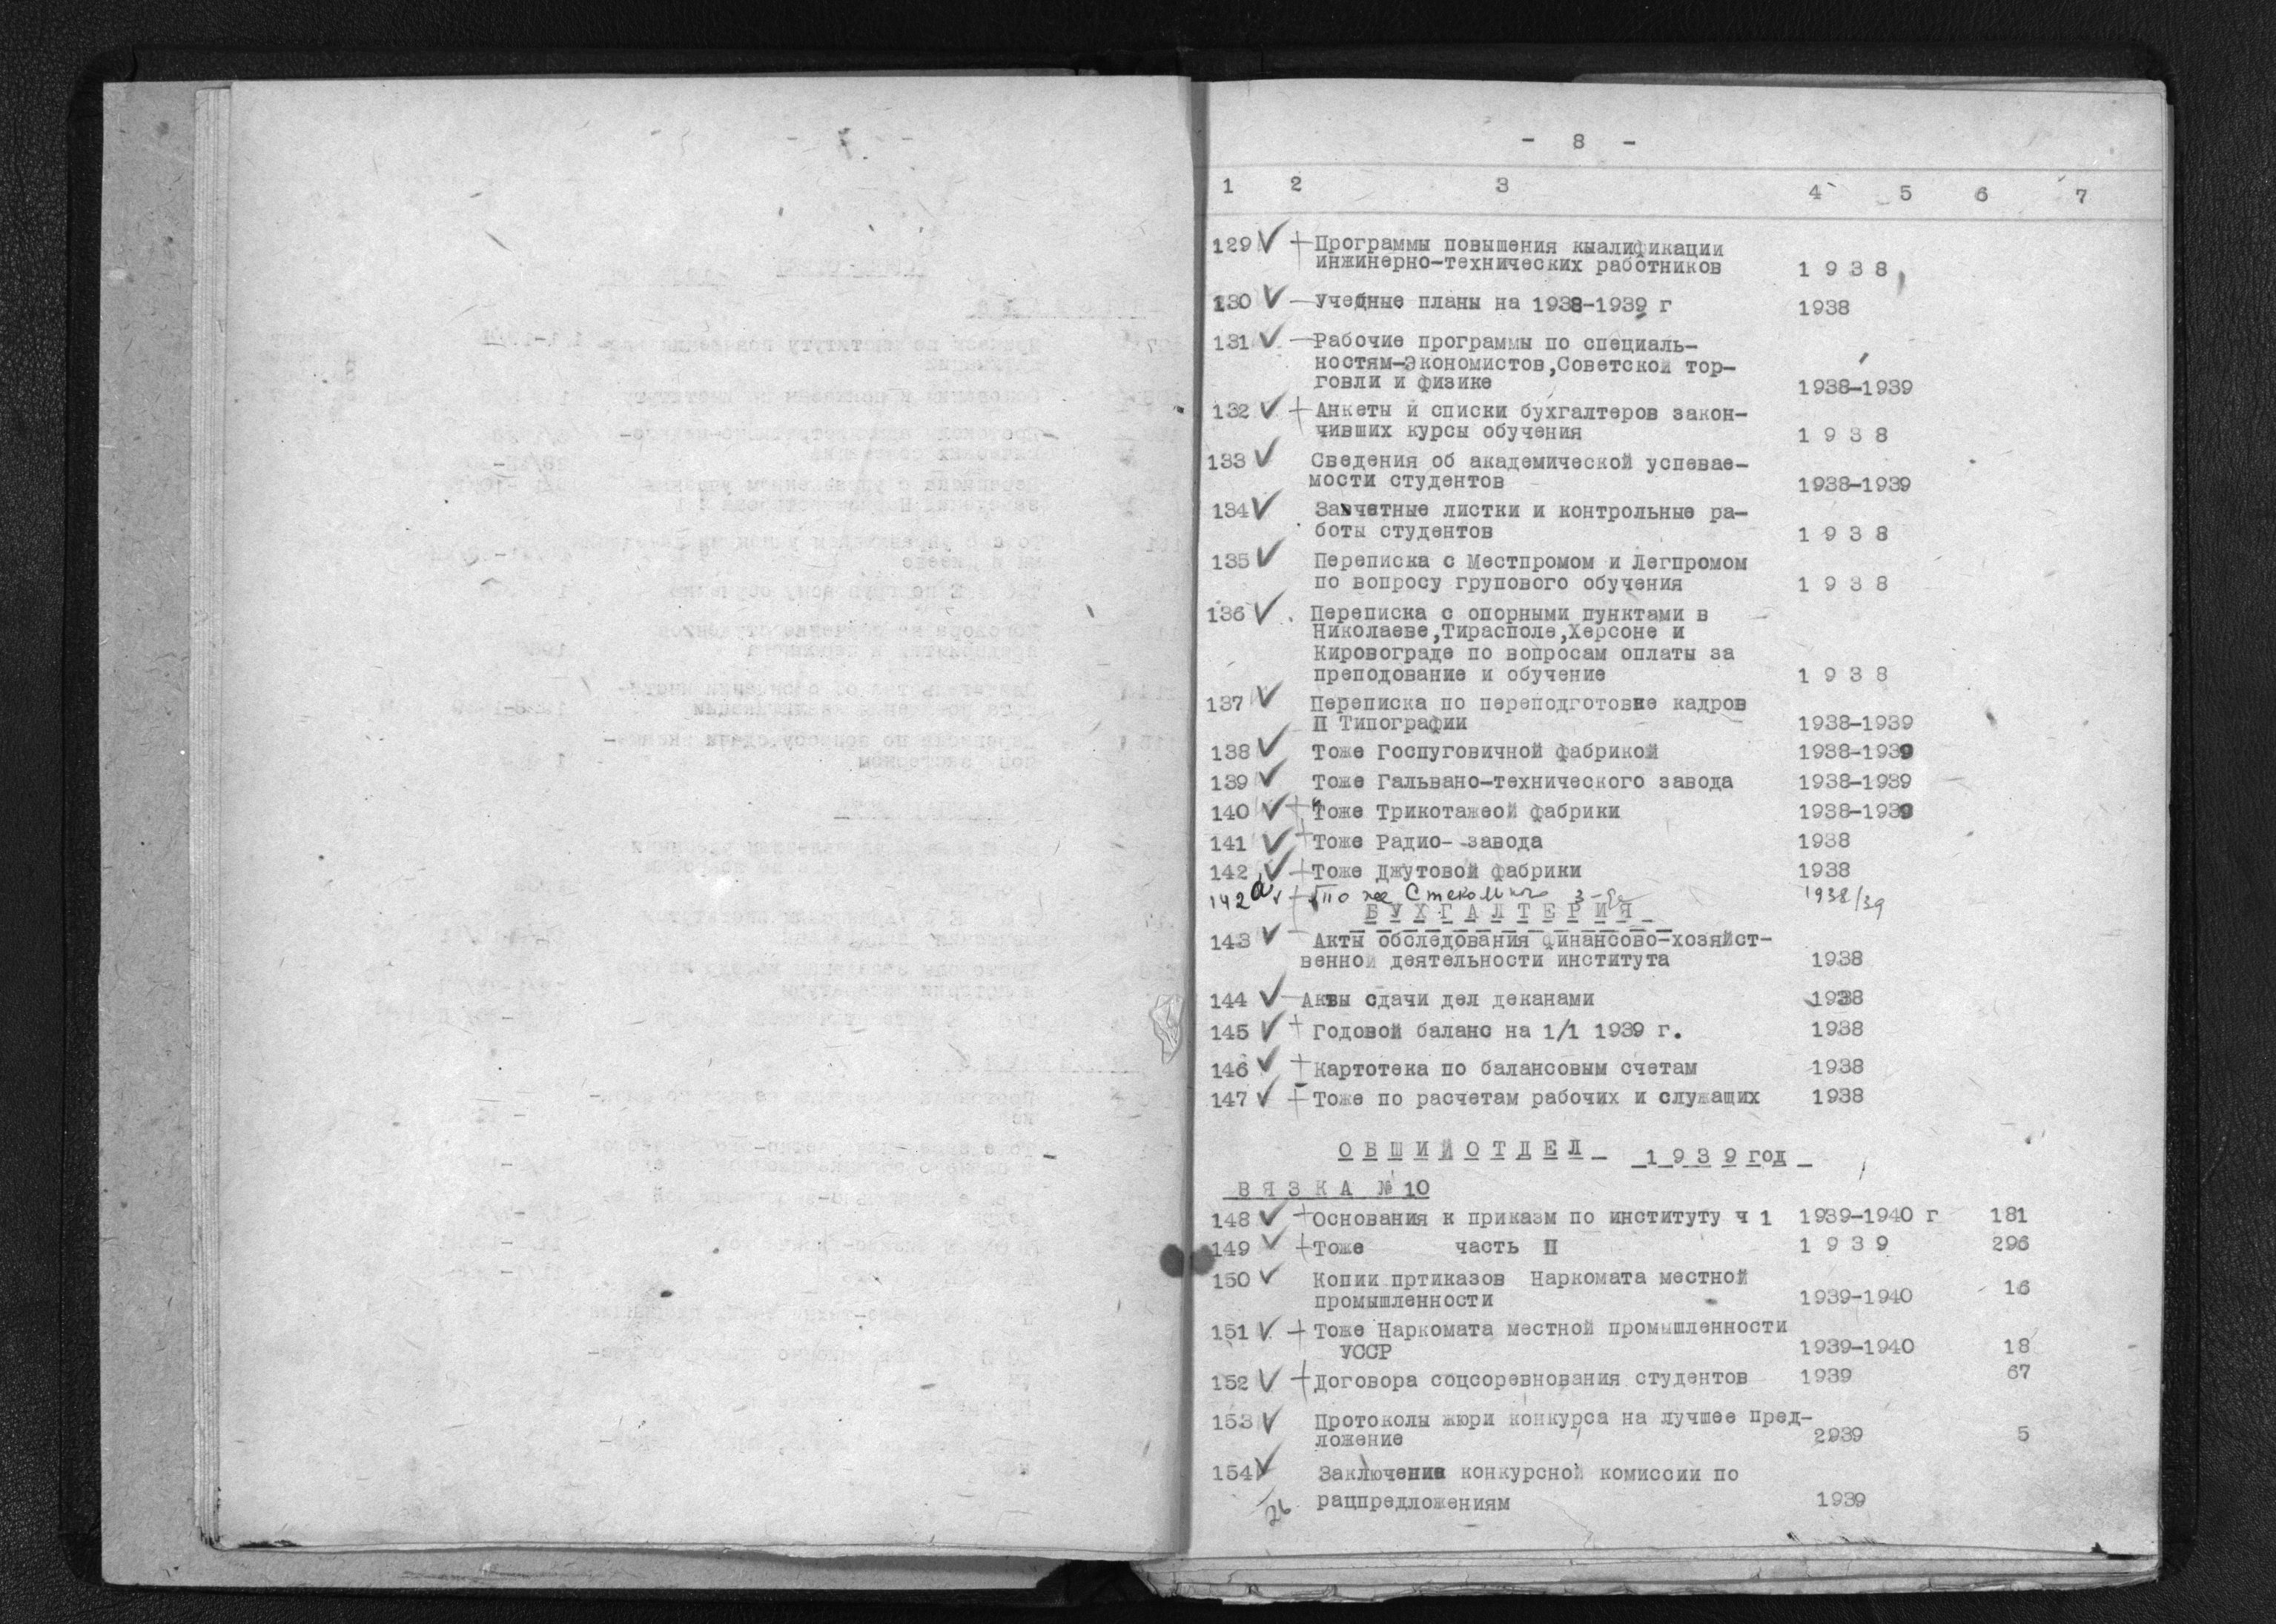 - 8 -
1 2 3 4 5 6 7
129 V + Программы повышения кыалификации
инжинерно-технических работников 1 9 3 8
130 V — Учебные планы на 1938-1939 г 1938
131 V — Рабочие программы по специаль-
ностям-Экономистов,Советской тор-
говли и физике 1938-1939
132 V + Анкеты и списки бухгалтеров закон-
чивших курсы обучения 1 9 3 8
133 V Сведения об академической успевае-
мости студентов 1938-1939
134 V Завчетные листки и контрольные ра-
боты студентов 1 9 3 8
135 V Переписка с Местпромом и Легпромом
по вопросу групового обучения 1 9 3 8
136 V Переписка с опорными пунктами в
Николаеве,Тирасполе,Херсоне и
Кировограде по вопросам оплаты за
преподование и обучение 1 9 3 8
137 V Переписка по переподготовке кадров
П Типографии 1938-1939
138 V Тоже Госпуговичной фабрикой 1938-1939
139 V Тоже Гальвано-технического завода 1938-1939
140 V + Тоже Трикотажеой фабрики 1938-1939
141 V + Тоже Радио- завода 1938
142 V + Тоже Джутовой фабрики 1938
142а v + То же 1938/39
Б У Х Г А Л Т Е Р И Я
143 V — Акты обследования финансово-хозяйст-
венной деятельности института 1938
144 V — Акты сдачи дел деканами 1938
145 V + Годовой баланс на 1/1 1939 г. 1938
146 V + Картотека по балансовым счетам 1938
147 V + Тоже по расчетам рабочих и служащих 1938
О Б Ш И Й О Т Д Е Л 1 9 3 9 год
В Я З К А № 10
148 V + Основания к приказм по институту ч 1 1939-1940 г 181
149 V + Тоже часть П 1 9 3 9 296
150 V Копии пртиказов Наркомата местной
промышленности 1939-1940 16
151 V + Тоже Наркомата местной промышленности
УССР 1939-1940 18
152 V + Договора соцсоревнования студентов 1939 67
153 V Протоколы жюри конкурса на лучшее пред-
ложение 2939 5
154 V Заключение конкурсной комиссии по
рацпредложениям 1939
26